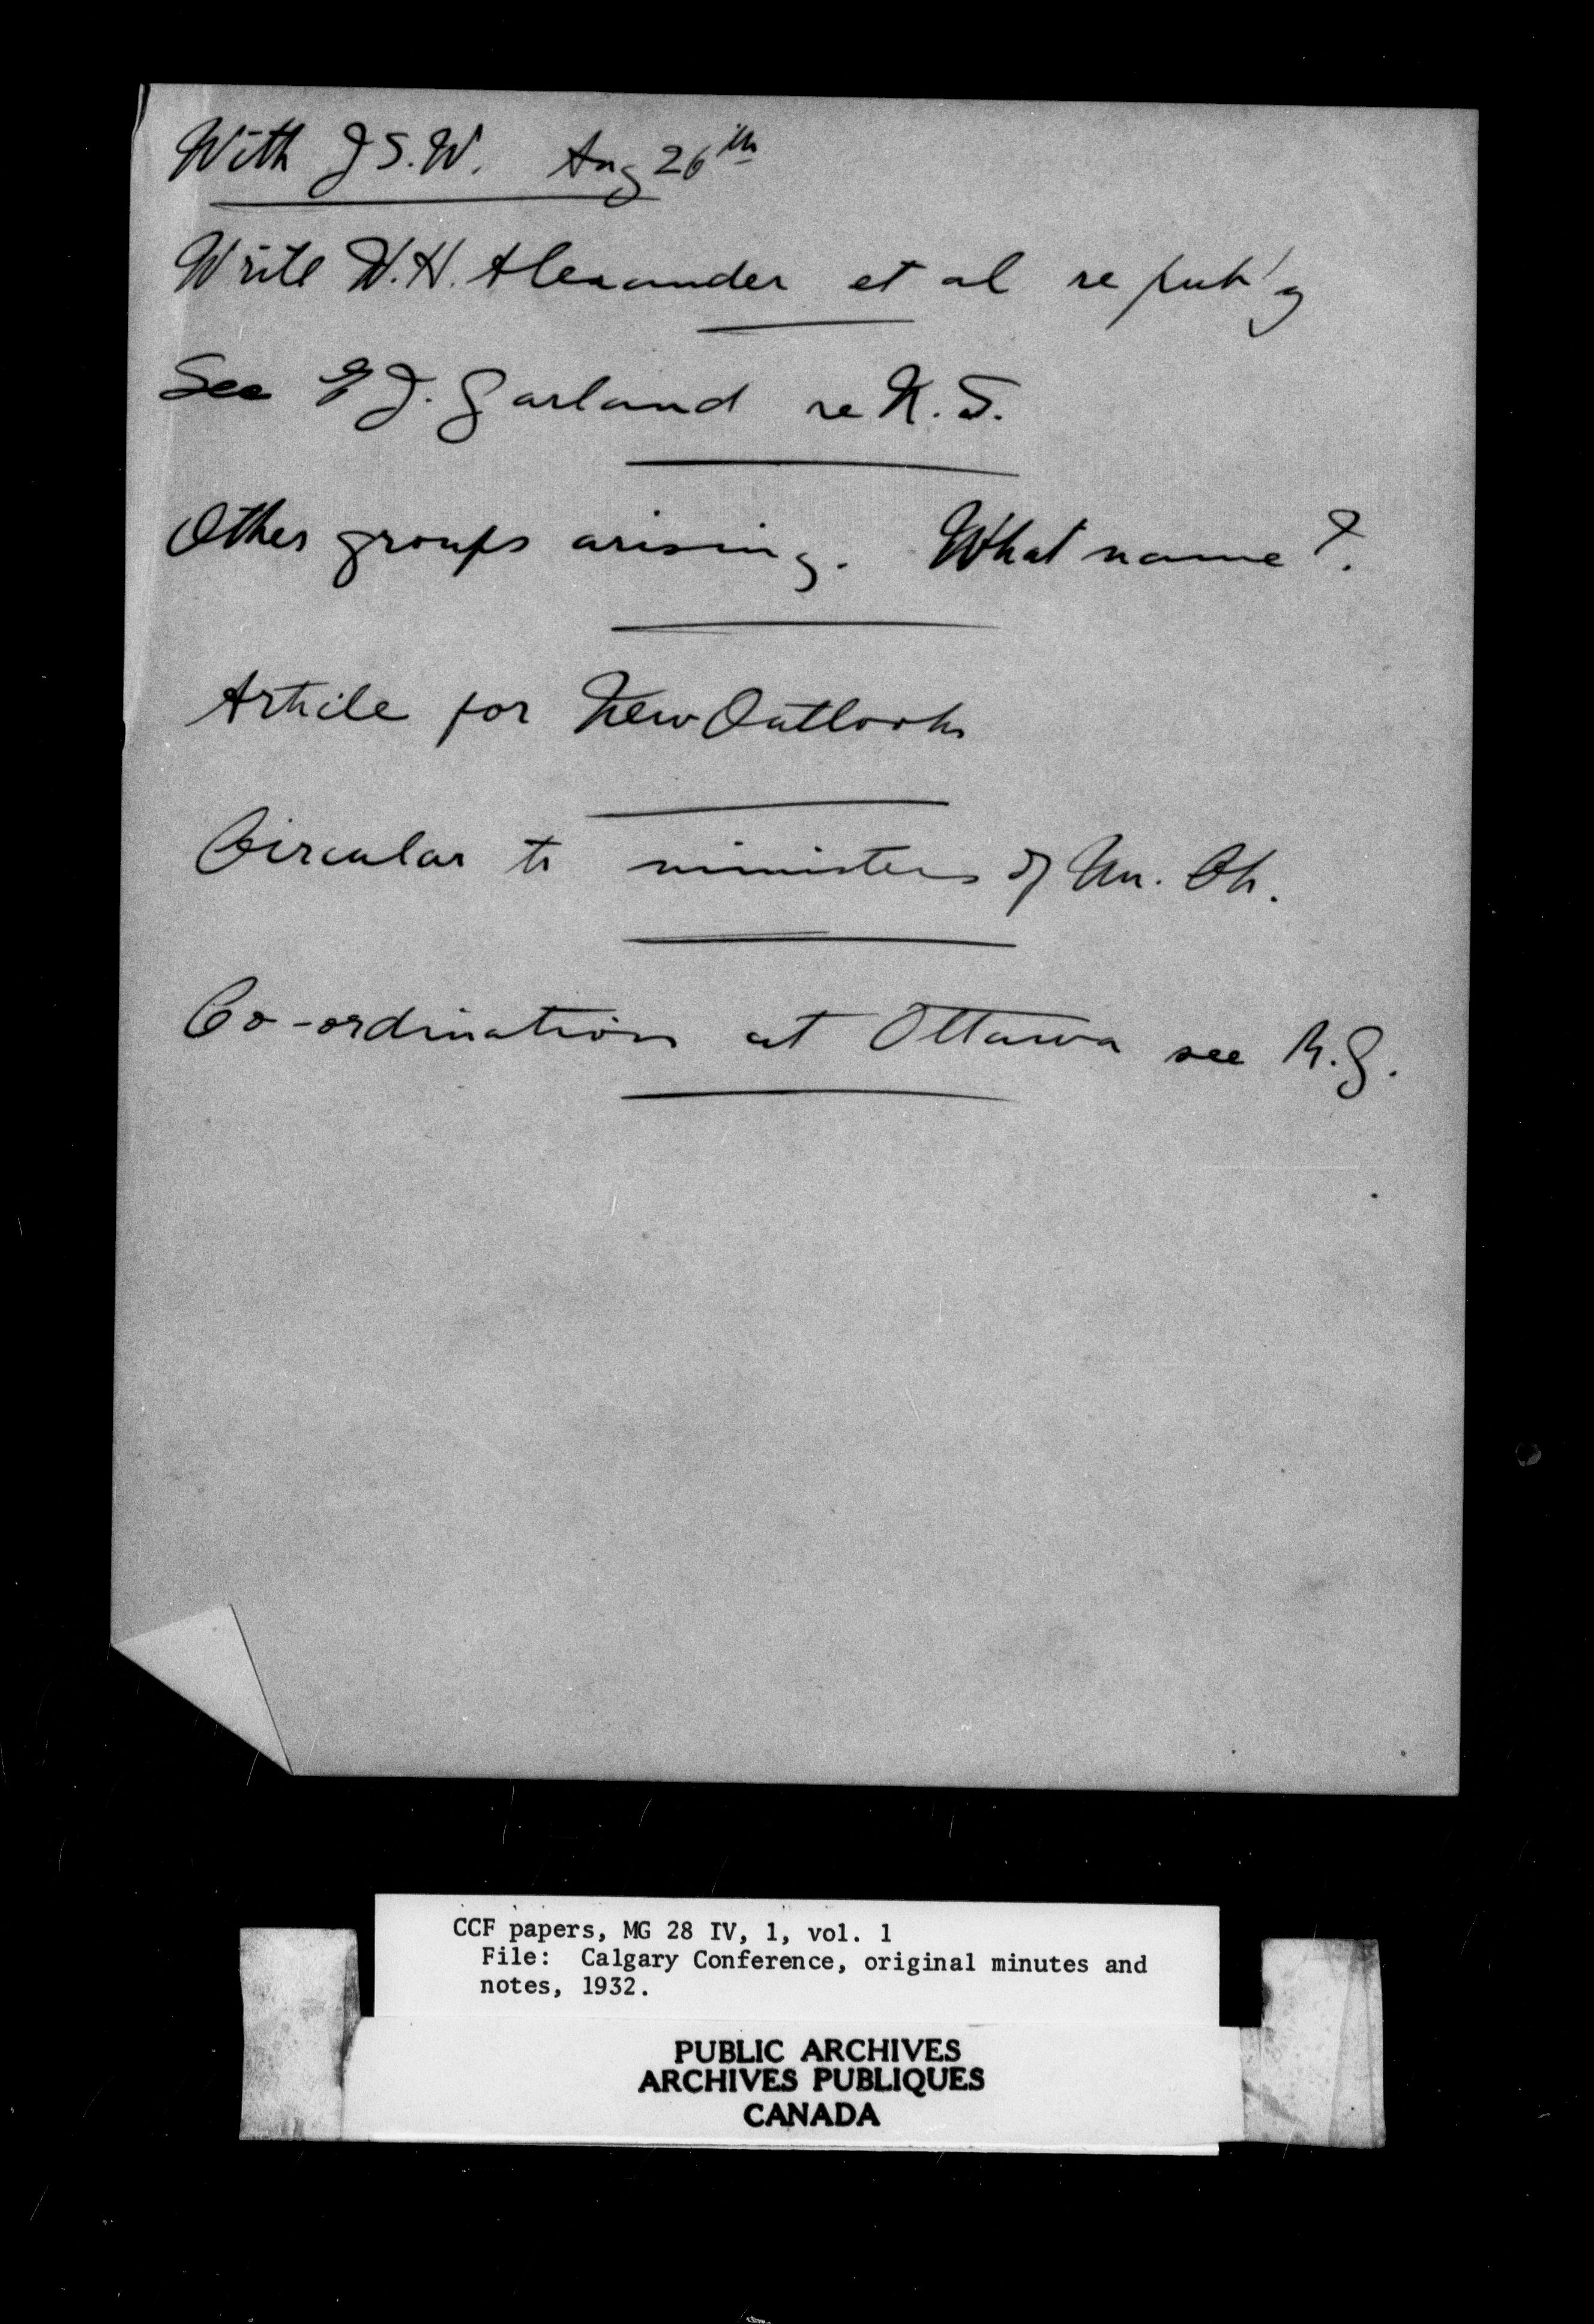 With J S. W. Aug 26th
Write W. H. Alexander et al re pub'g
See E J. Garland re N. S.
Other groups arising. What name?.
Article for New Outlook
Circular to ministers of Un. Ch.
Co-ordination at Ottawa see R. G.
CCF papers, MG 28 IV, 1, vol. 1
File: Calgary Conference, original minutes and
notes, 1932.
PUBLIC ARCHIVES
ARCHIVES PUBLIQUES
CANADA